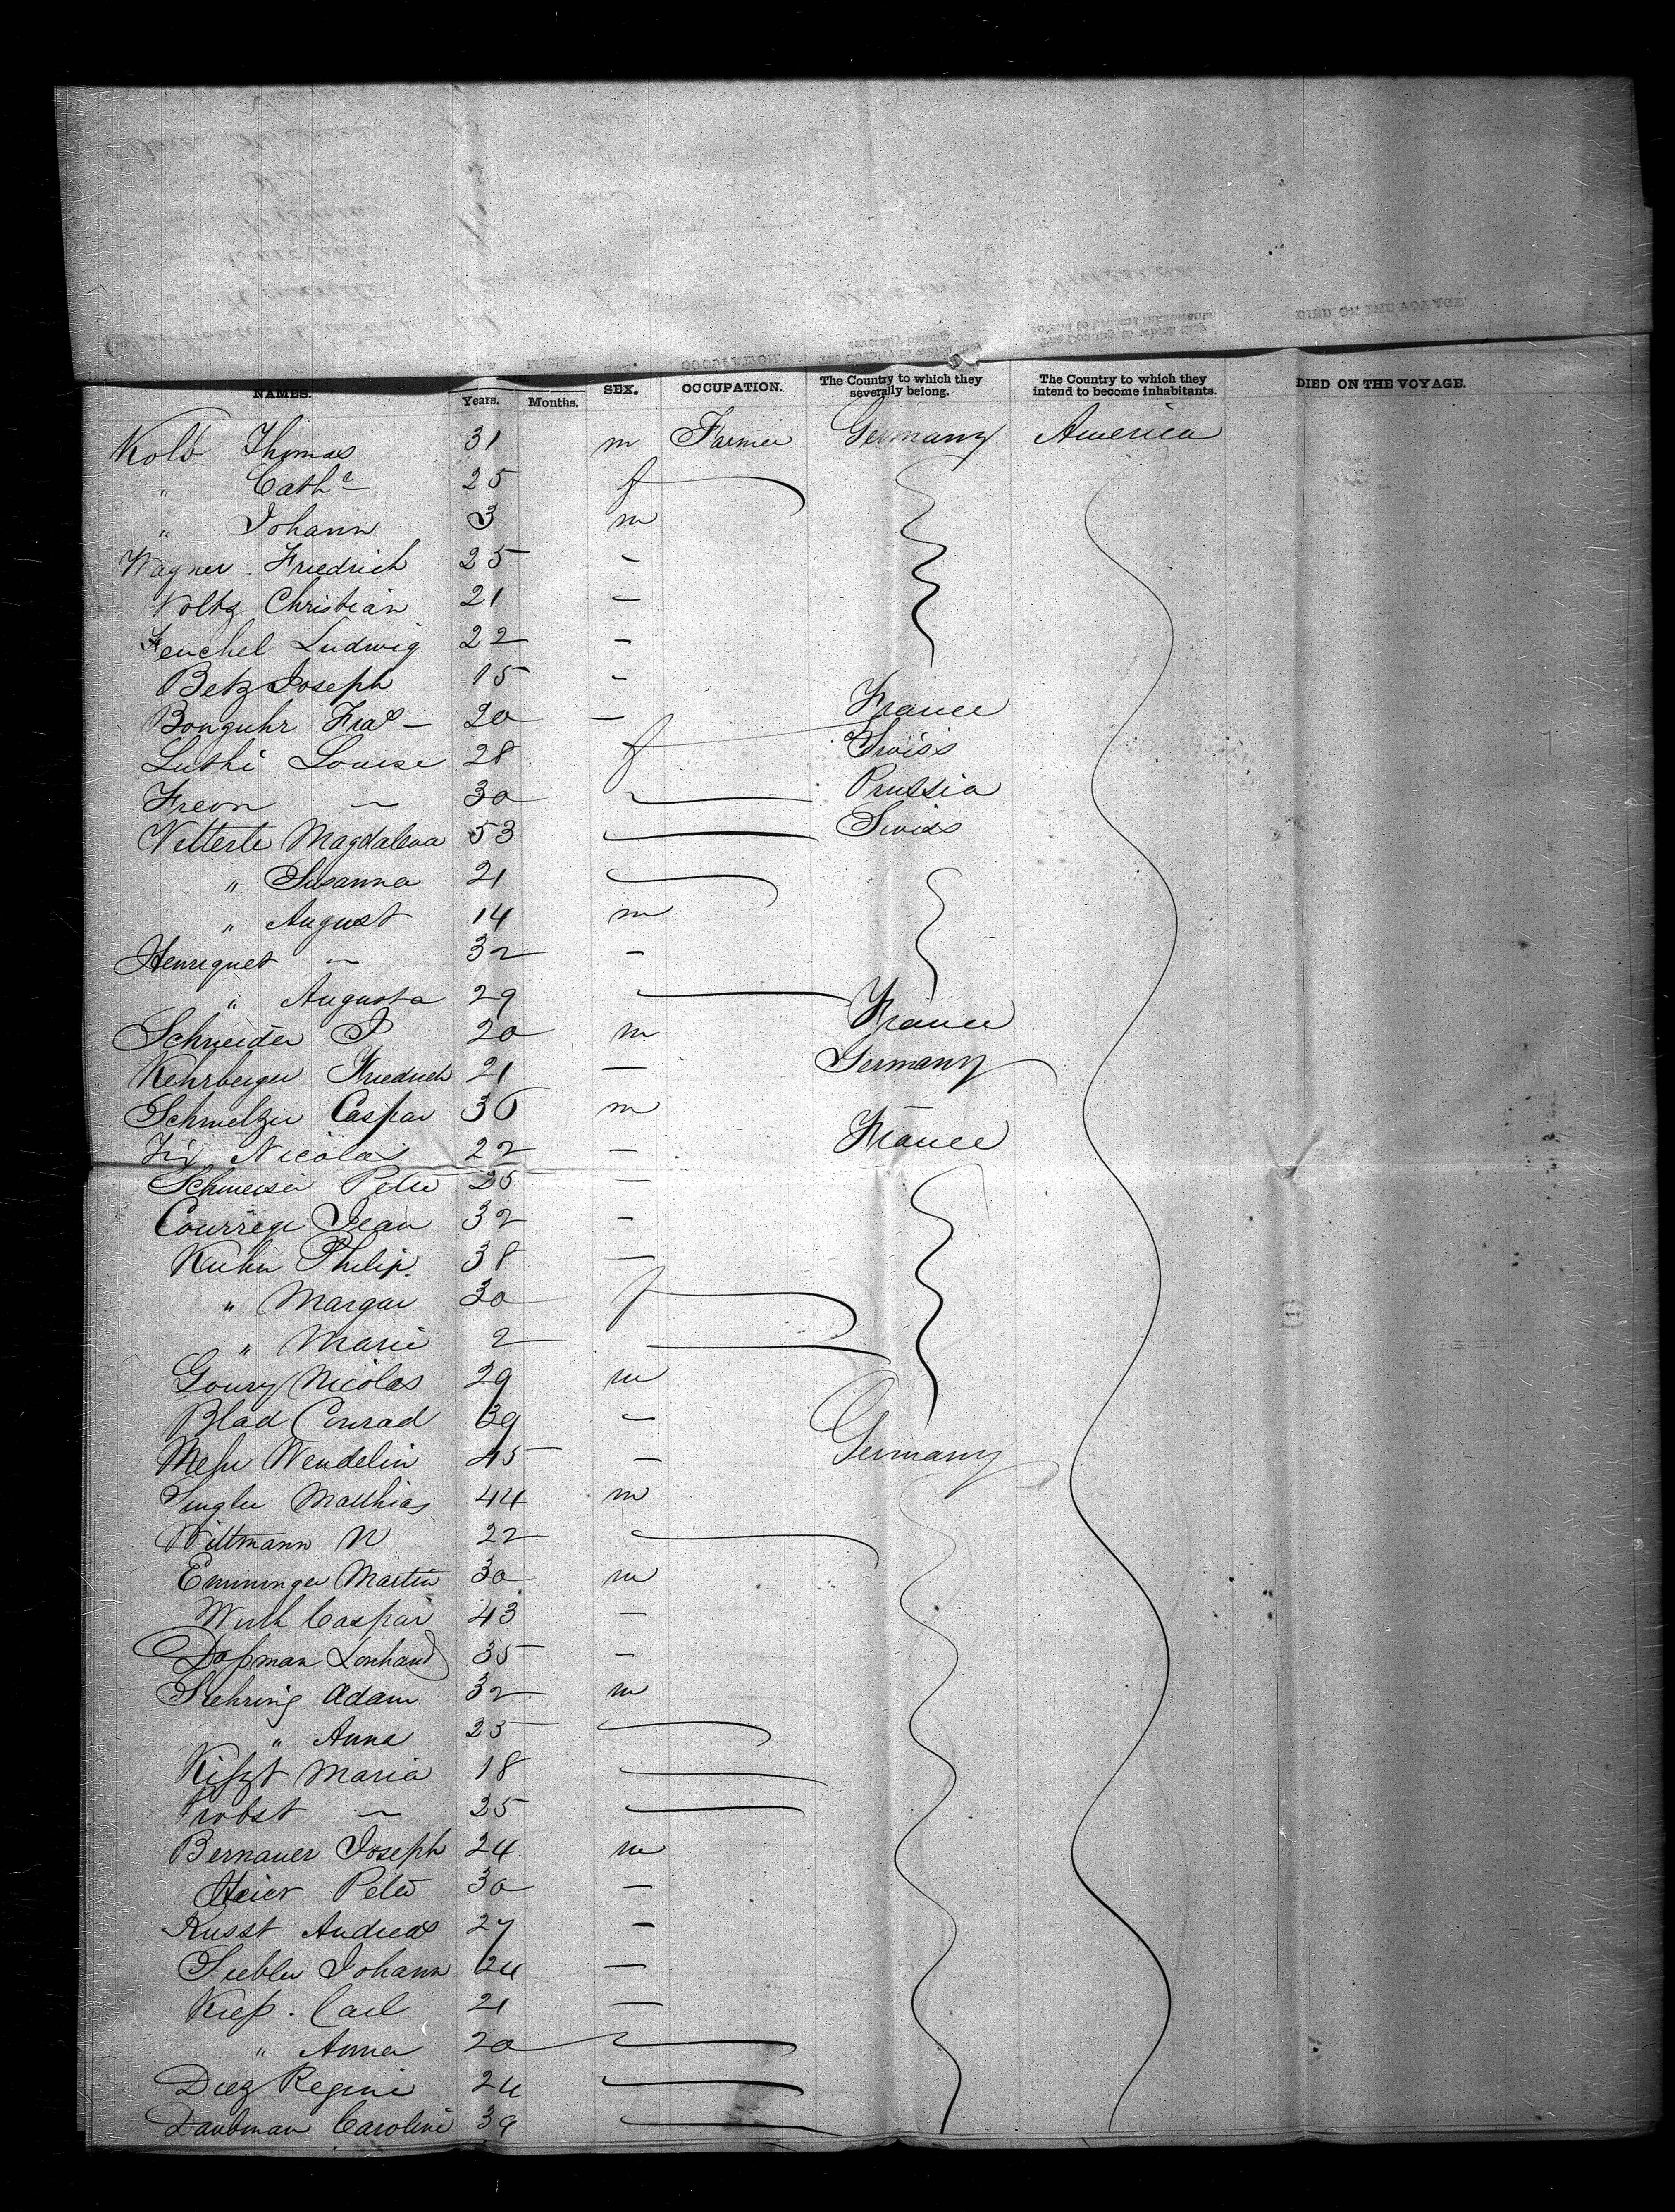 NAMES. Years. Months. SEX. OCCUPATION. The Country to which they severally belong. The Country to which they intend to become inhabitants. DIED ON THE VOYAGE.
Kolb Thomas 31 m Farmer Germany America
" Cathe 25 f
" Johann 3 m
Wagner Friedrich 25 —
Voltz Christian 21 —
Fenchel Ludwig 22 —
Betz Joseph 15 —
Bonguhr Fras — 20 — France
Luthi Louise 28 f Swiss
Freon — 30 Prussia
Vetterli Magdalena 53 Swiss
" Susanna 21
" August 14 m
Henriquet — 32 —
" Augusta 29 France
Schneider J 20 m
Kehrberger Friedrich 21 — Germany
Schmelzer Caspar 36 m
Fix Nicolas 22 — France
Schmeiser Peter 25 —
Courrege Jean 32 —
Kuhn Philip. 38 —
" Margar 30 f
" Marie 2
Goury Nicolas 29 m
Blad Conrad 39 —
Wendelin 45 — Germany
Singler Matthias 44 m
Wittmann N 22
Emminger Martin 30 m
Wirth Caspar 43 —
Doßman Lonhard 35 —
Adam 32 m
" Anna 25
Kißzt Maria 18
Probst — 25
Bernauer Joseph 24 m
Heier Peter 30 —
Russt Andreas 27 —
Johann 24 —
Kieß . Carl 21 —
" Anna 20
Diez Regine 24
Daubman Caroline 39